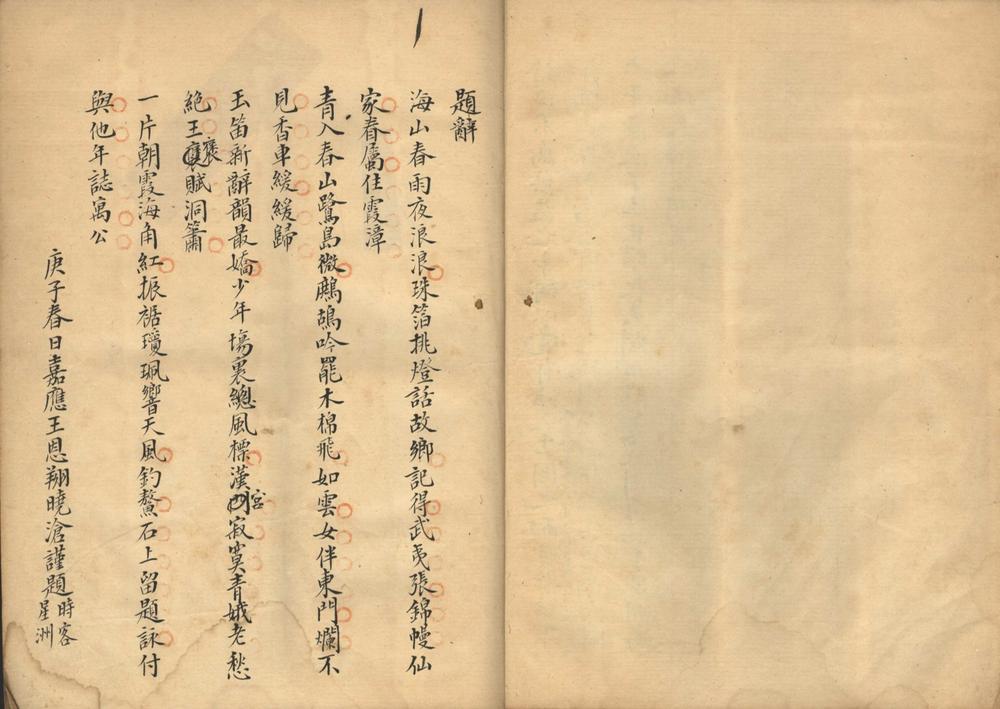 題辭
海山春雨夜浪浪珠箔挑燈話故鄉記得武夷張錦幔仙
家眷屬住霞漳
青入春山鷺島微鷓鴣吟罷木棉飛如雲女伴東門爛不
見香車緩緩歸
玉笛新辭韻最嬌少年場裏總風標漢宮寂寞青娥老愁
絕王褒賦洞簫
一片朝霞海角紅振裾瓊珮響天風釣鰲石上留題詠付
與他年誌寓公
庚子春日嘉應王恩翔曉滄謹題時客
星洲